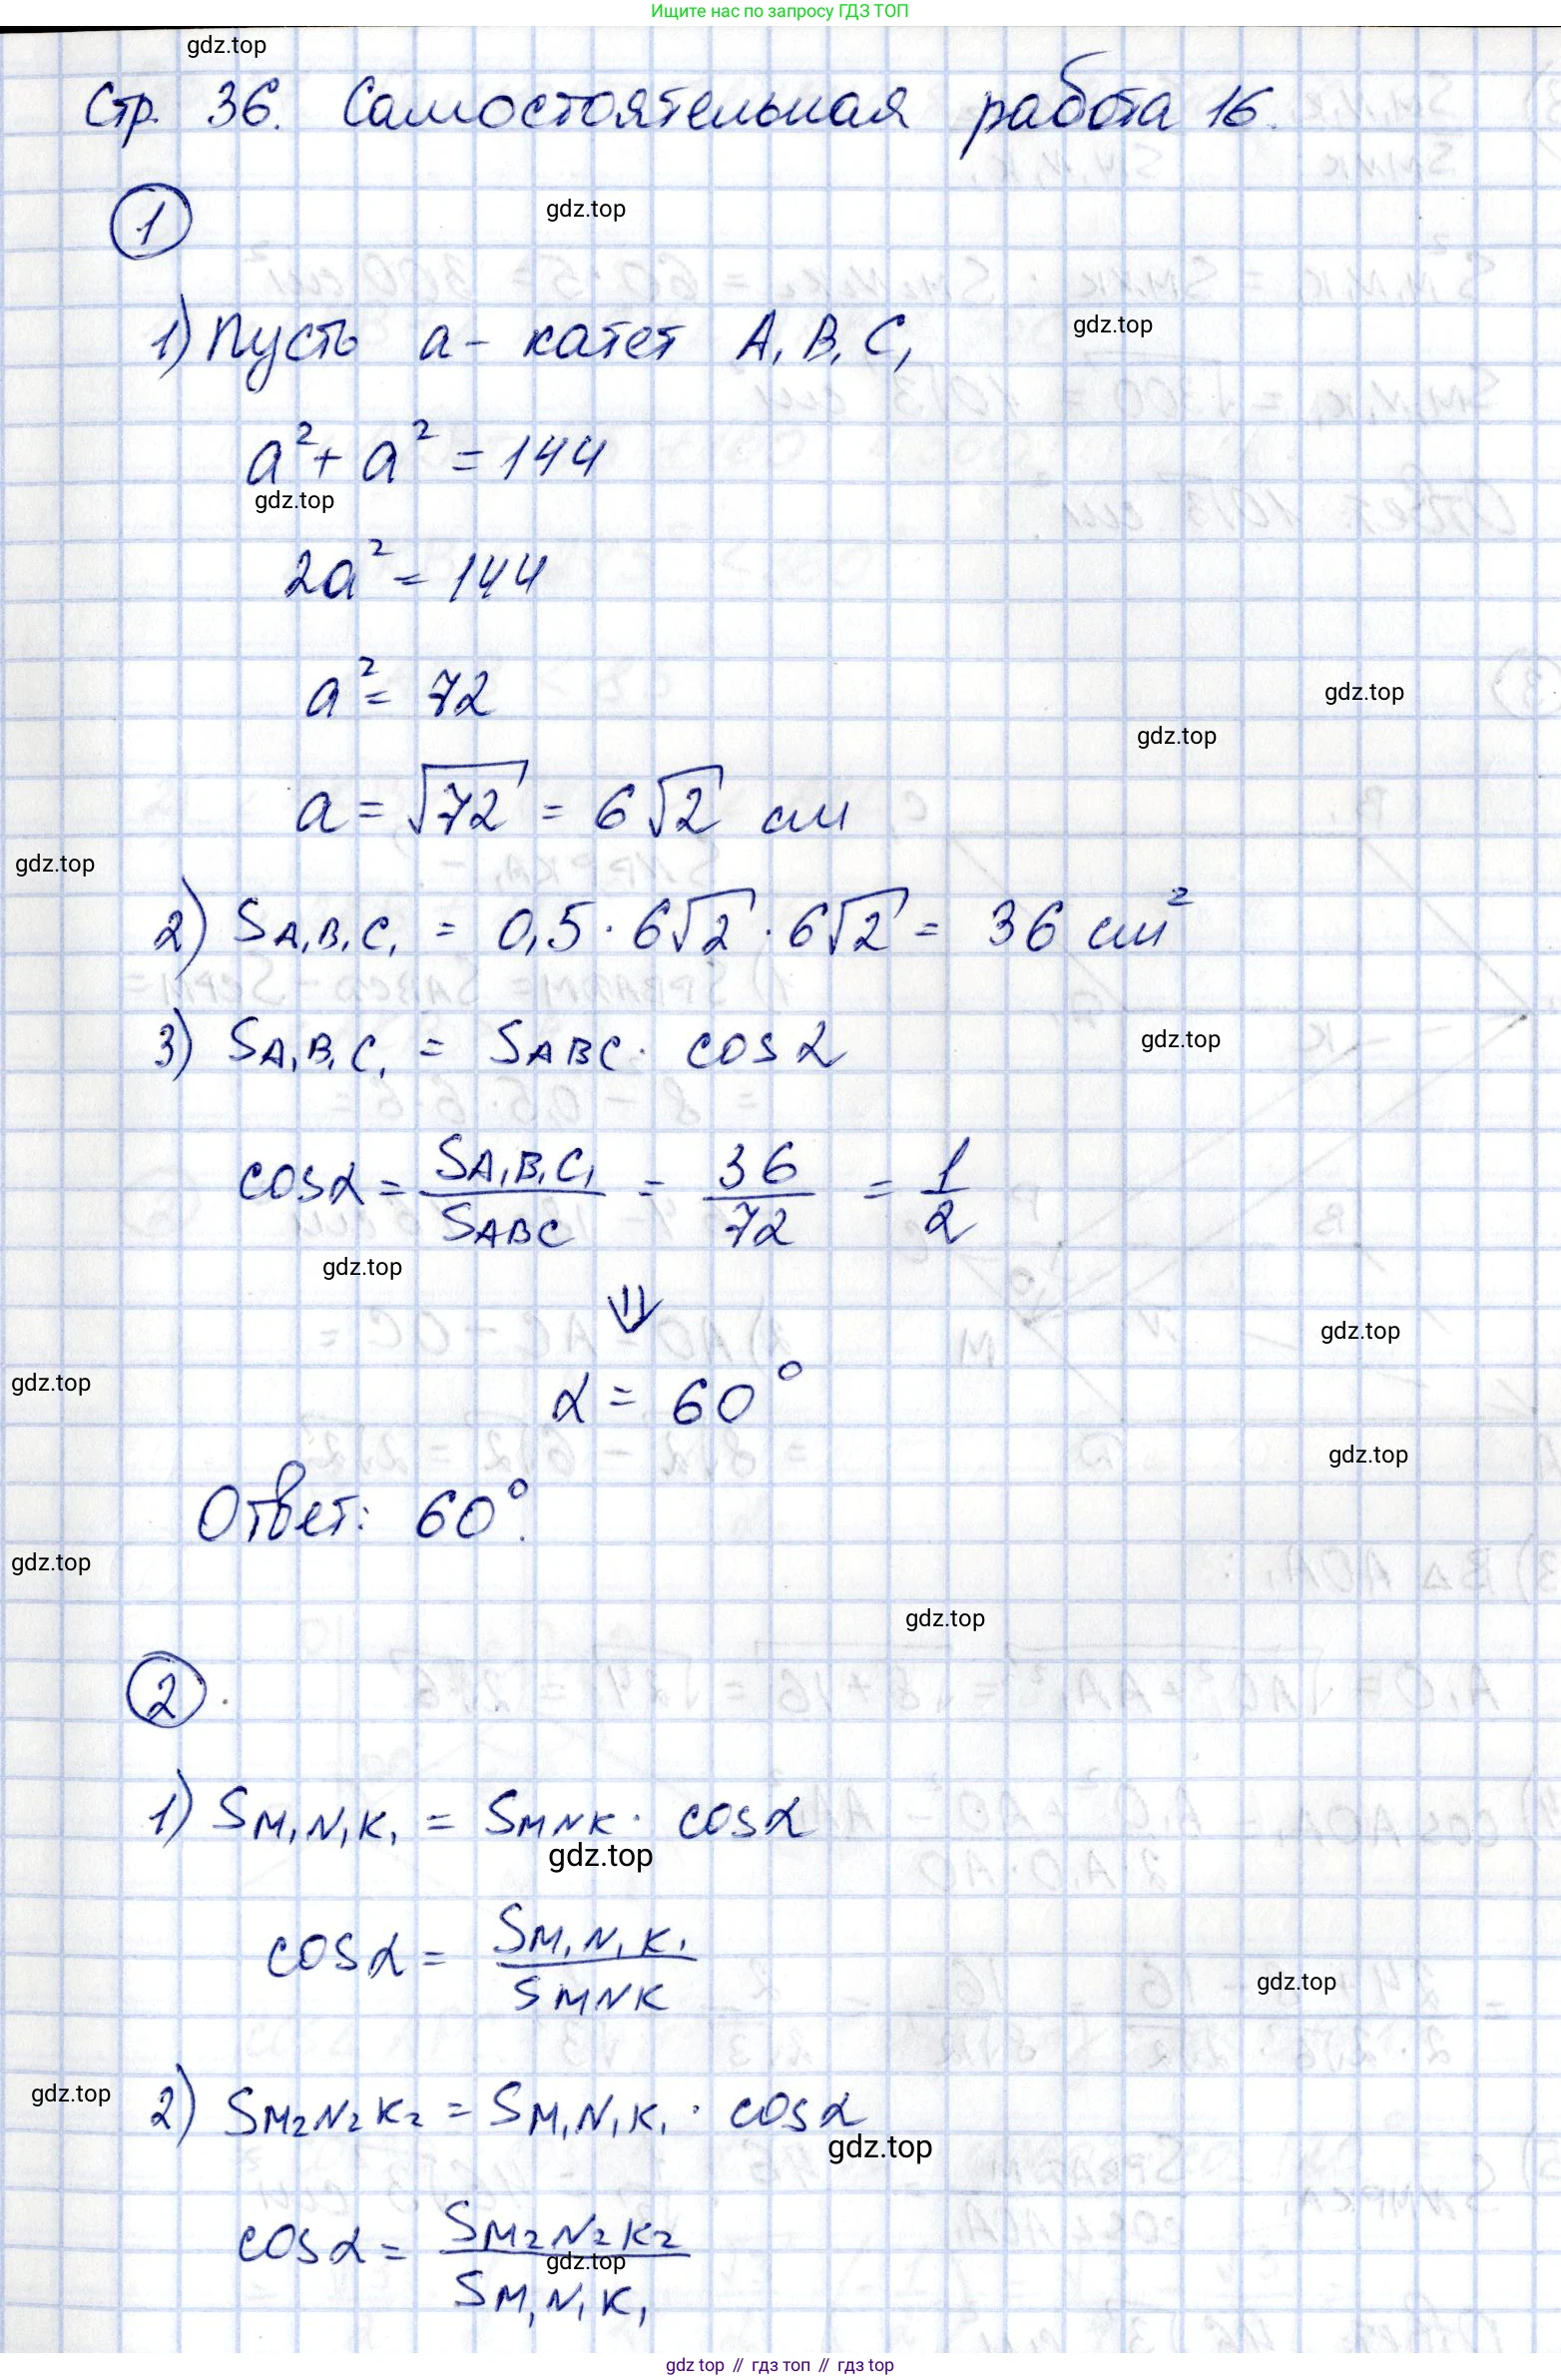 Ищите нас по запросу ГДЗ ТОП
gdz.top
Стр. 36. Самостоятельная работа 16.
1
gdz.top
1) Пусть a - катет A₁B₁C₁
gdz.top
a² + a² = 144
gdz.top
2a² = 144
a² = 72
gdz.top
gdz.top
a = √72 = 6√2 см
gdz.top
2) S A₁B₁C₁ = 0,5 · 6√2 · 6√2 = 36 см²
3) S A₁B₁C₁ = S ABC · cos α
gdz.top
cos α = S A₁B₁C₁ / S ABC = 36/72 = 1/2
gdz.top
⇓
gdz.top
α = 60°
gdz.top
gdz.top
Ответ: 60°.
gdz.top
gdz.top
2
1) S M₁N₁K₁ = S MNK · cos α
gdz.top
cos α = S M₁N₁K₁ / S MNK
gdz.top
gdz.top
2) S M₂N₂K₂ = S M₁N₁K₁ · cos α
gdz.top
cos α = S M₂N₂K₂ / S M₁N₁K₁
gdz.top
gdz top // гдз топ // гдз top